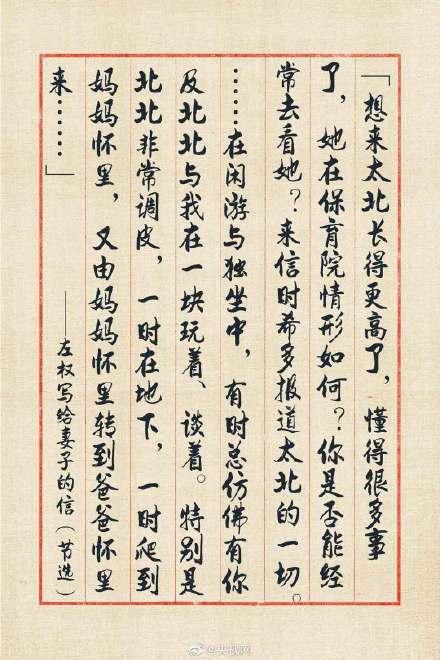 「想来太北长得更高了，懂得很多事
了，她在保育院情形如何？你是否能经
常去看她？来信时希多报道太北的一切。
……在闲游与独坐中，有时总仿佛有你
及北北与我在一块玩着、谈着。特别是
北北非常调皮，一时在地下，一时爬到
妈妈怀里，又由妈妈怀里转到爸爸怀里
来……」
——左权写给妻子的信（节选）
@央视网